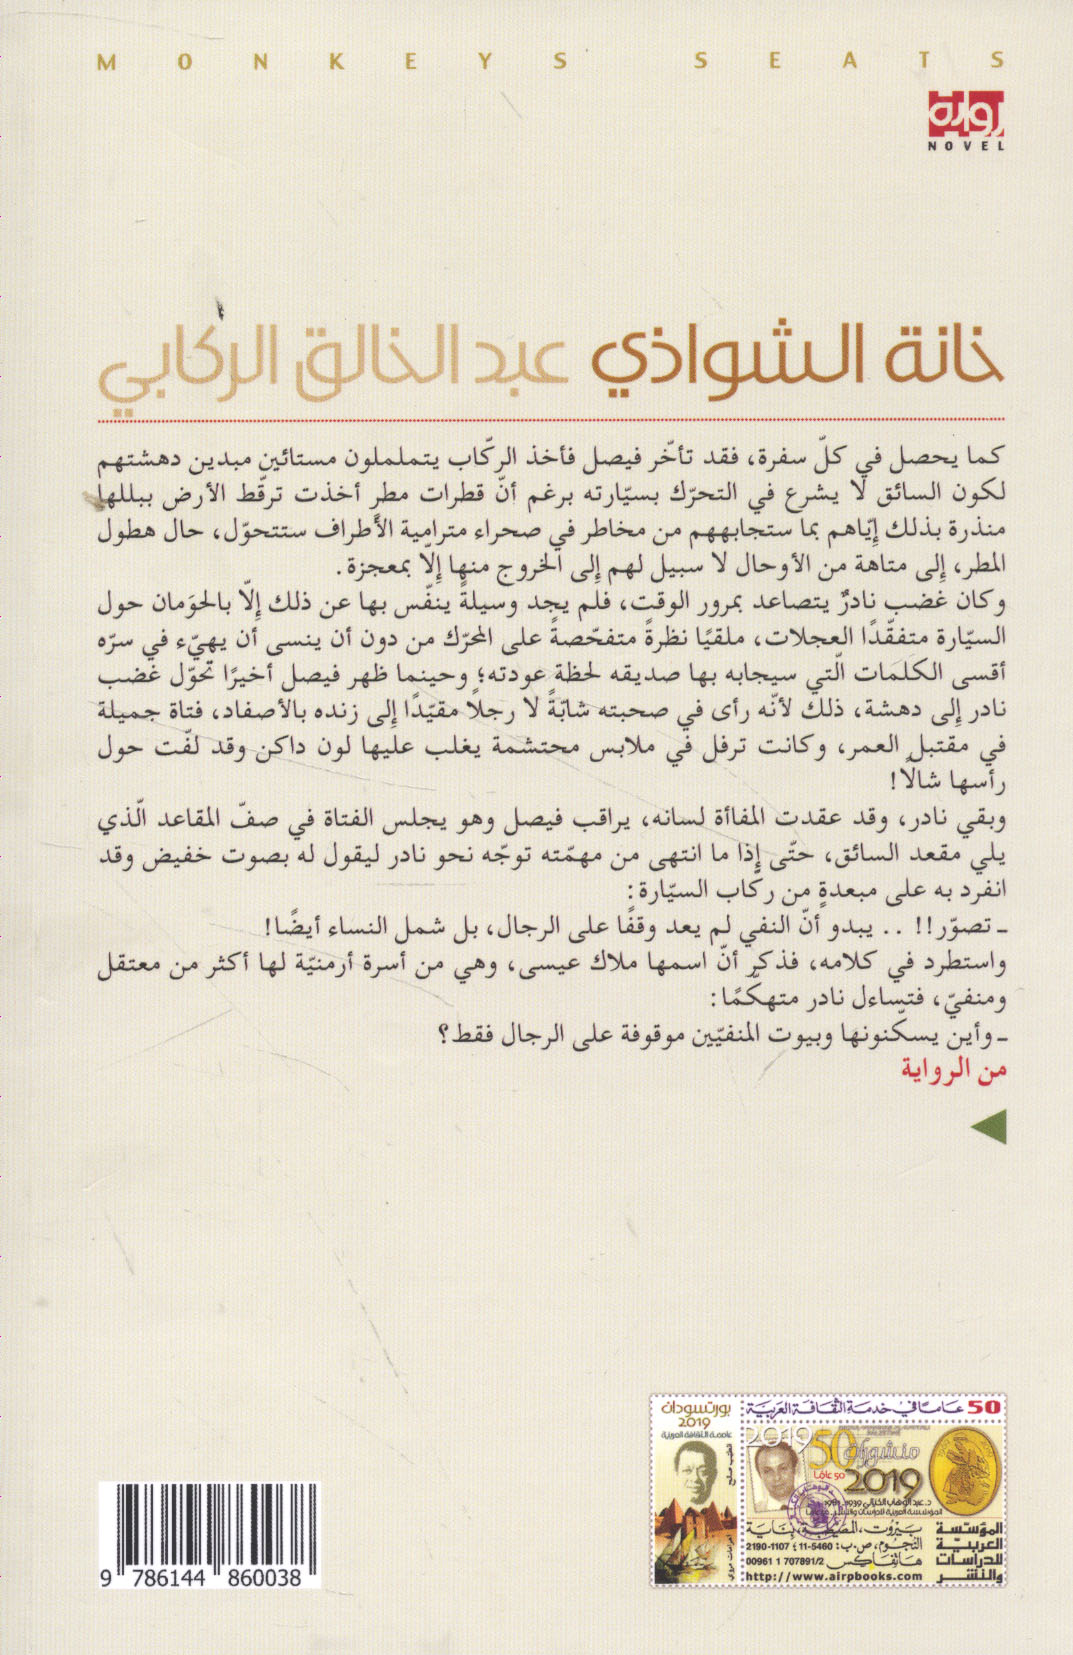 MONKEYS SEATS
رواية
NOVEL
خانة الشواذي عبد الخالق الركابي
كما يحصل في كلّ سفرة، فقد تأخّر فيصل فأخذ الركّاب يتململون مستائين مبدين دهشتهم
لكون السائق لا يشرع في التحرّك بسيّارته برغم أنّ قطرات مطر أخذت ترقّط الأرض ببللها
منذرة بذلك إيّاهم بما ستجابههم من مخاطر في صحراء مترامية الأطراف ستتحوّل، حال هطول
المطر، إلى متاهة من الأوحال لا سبيل لهم إلى الخروج منها إلّا بمعجزة.
وكان غضب نادرٌ يتصاعد بمرور الوقت، فلم يجد وسيلةً ينفّس بها عن ذلك إلّا بالحوَمان حول
السيّارة متفقّدًا العجلات، ملقيًا نظرةً متفحّصةً على المحرّك من دون أن ينسى أن يهيّء في سرّه
أقسى الكلمات الّتي سيجابه بها صديقه لحظة عودته؛ وحينما ظهر فيصل أخيرًا تحوّل غضب
نادر إلى دهشة، ذلك لأنّه رأى في صحبته شابّةً لا رجلًا مقيّدًا إلى زنده بالأصفاد، فتاة جميلة
في مقتبل العمر، وكانت ترفل في ملابس محتشمة يغلب عليها لون داكن وقد لفّت حول
رأسها شالًا!
وبقي نادر، وقد عقدت المفاأة لسانه، يراقب فيصل وهو يجلس الفتاة في صفّ المقاعد الّذي
يلي مقعد السائق، حتّى إذا ما انتهى من مهمّته توجّه نحو نادر ليقول له بصوت خفيض وقد
انفرد به على مبعدةٍ من ركاب السيّارة:
ـ تصوّر!! .. يبدو أنّ النفي لم يعد وقفًا على الرجال، بل شمل النساء أيضًا!
واستطرد في كلامه، فذكر أنّ اسمها ملاك عيسى، وهي من أسرة أرمنيّة لها أكثر من معتقل
ومنفيّ، فتساءل نادر متهكّمًا:
ـ وأين يسكّنونها وبيوت المنفيّين موقوفة على الرجال فقط؟
من الرواية
50 عامًا في خدمة الثقافة العربية
بورتسودان
2019
عاصمة الثقافة العربية
الطيب صالح
اهرامات مروي
2019
50
منشورات
2019
50 عامًا
د. عبد الوهاب الكيالي 1939-1981
المؤسسة العربية للدراسات والنشر
المؤسّسة
العربيّة
للدراسات
والنشر
بيروت، المصيطبة، بناية
النجوم، ص.ب: 5460-11 ؛ 1107-2190
هاتفاكس 00961 1 707891/2
http://www.airpbooks.com
9 786144 860038